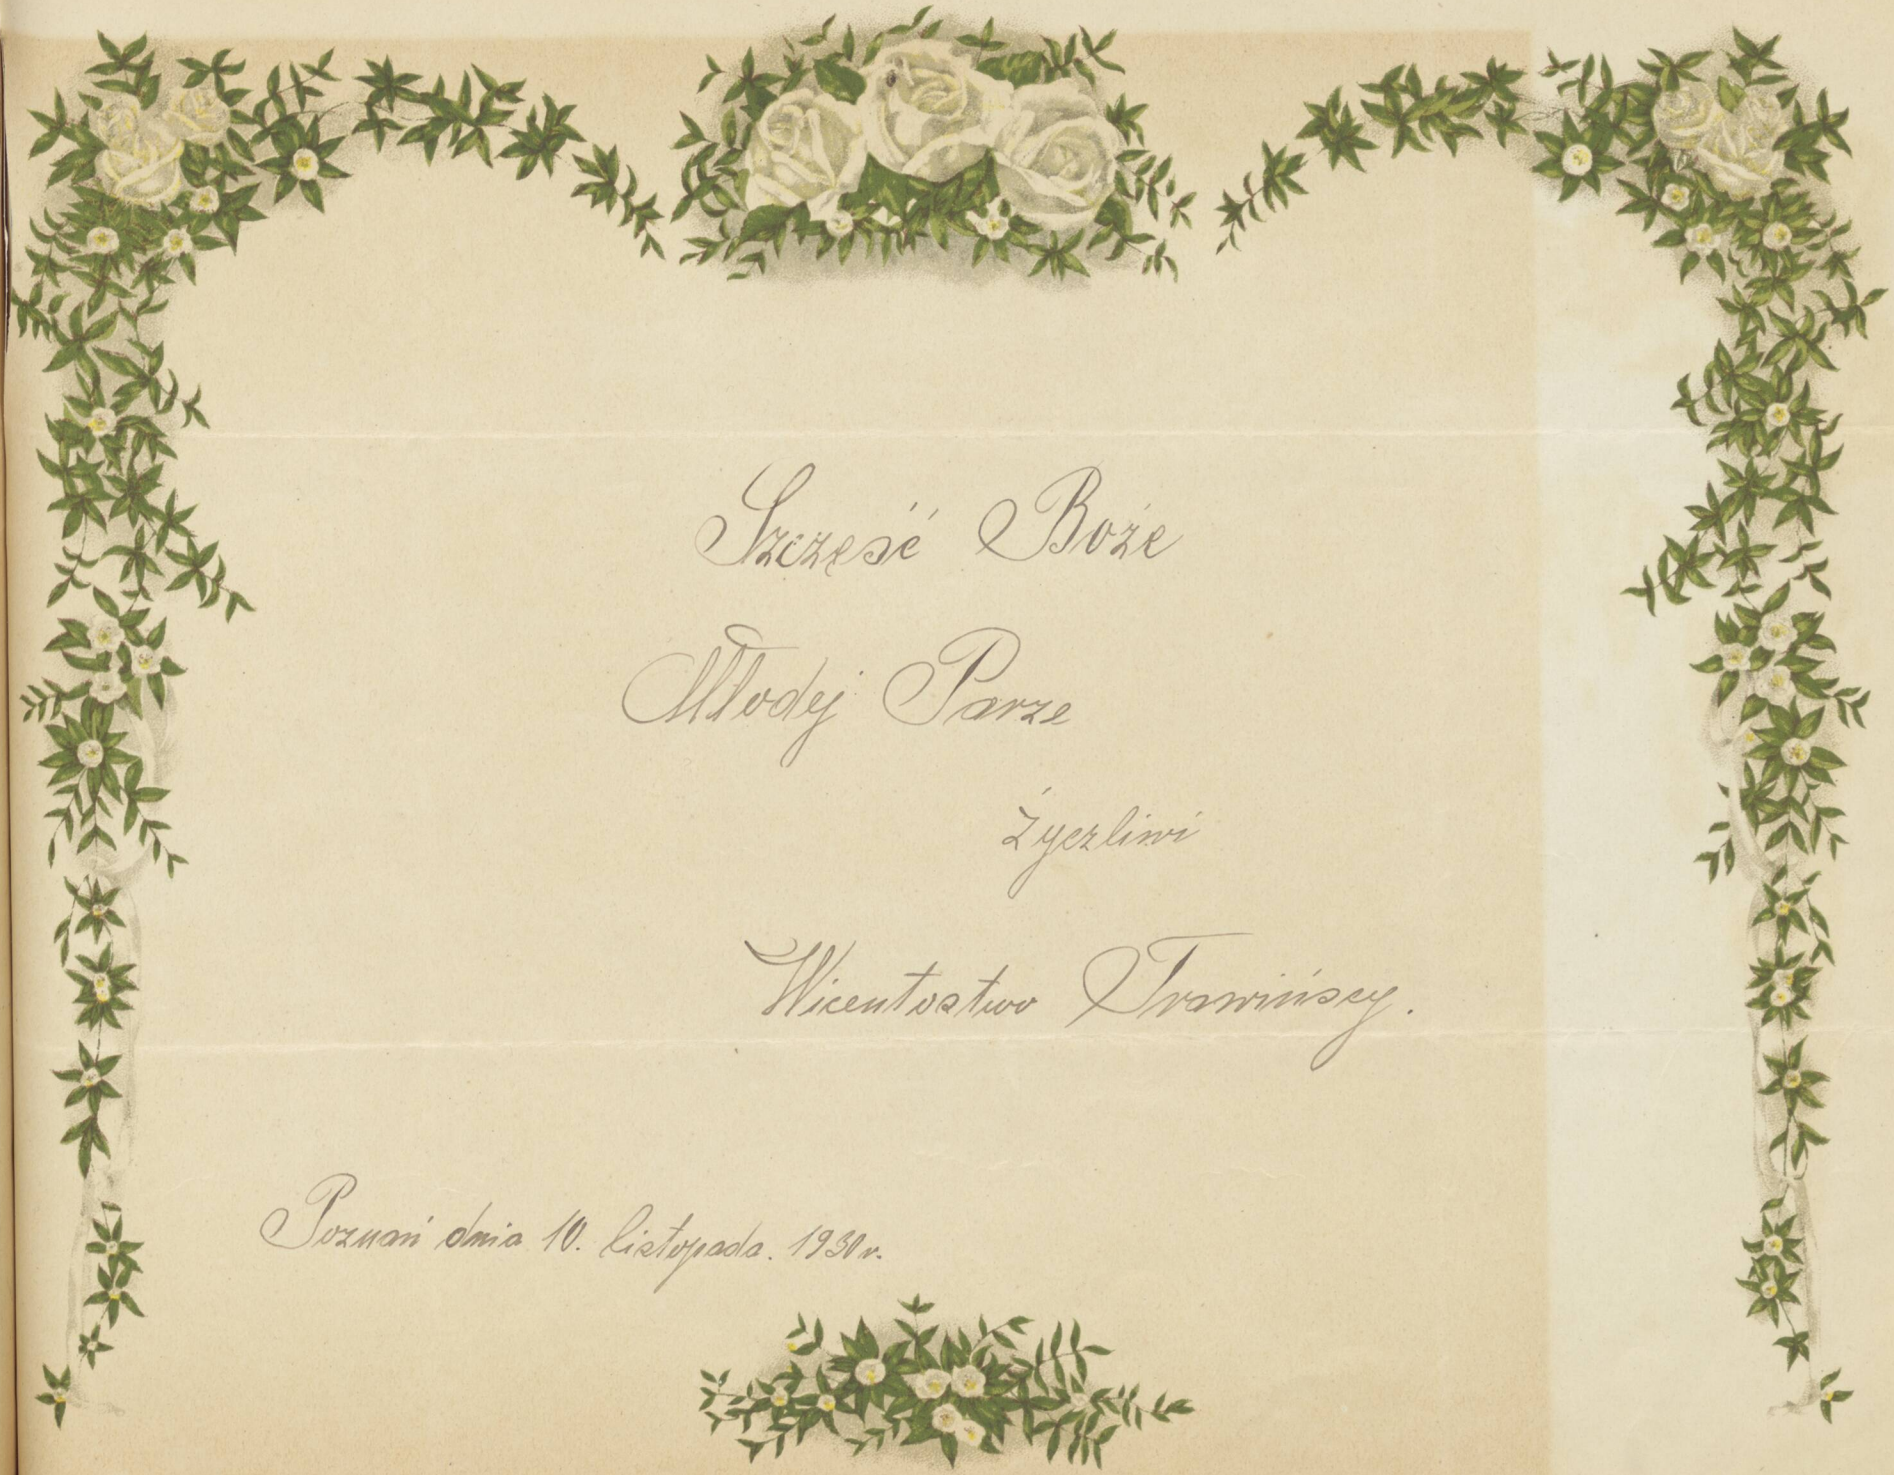 Szczęść Boże
Młodej Parze
Życzliwi
Wicentostwo Trawińscy.
Poznań dnia 10. listopada. 1930 r.